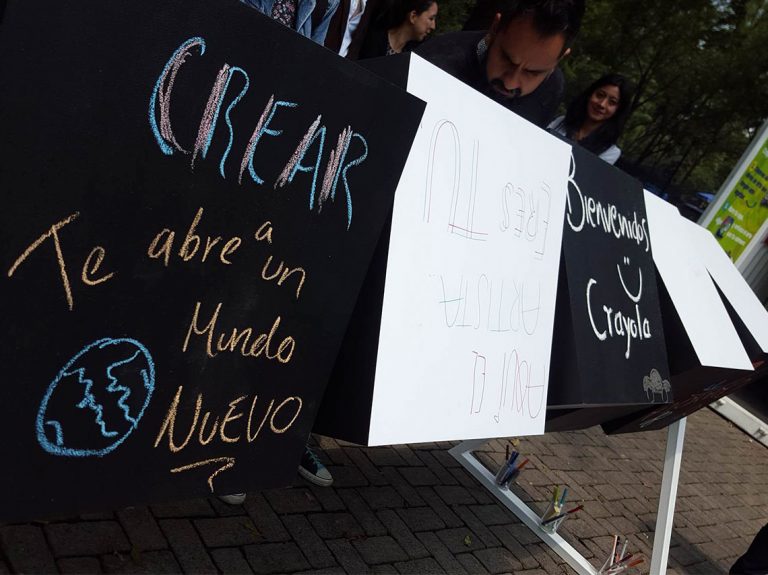 CREAR
Te abre a
un
Mundo
NUEVO
AQUÍ El
ARTISTA
ERES TU
Bienvenidos
Crayola